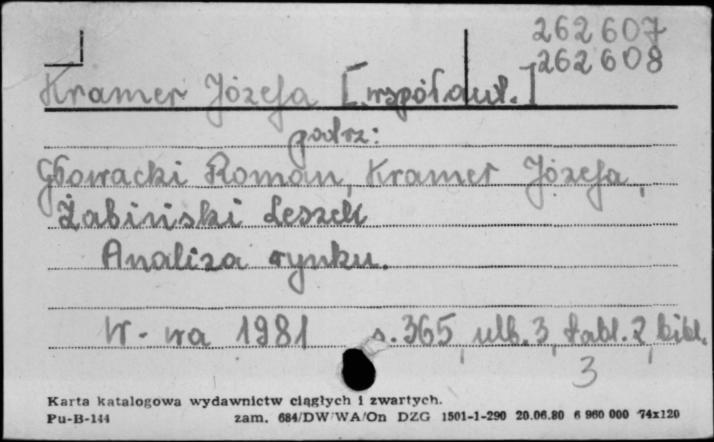 262607
262608
Kramer Józefa [współaut.]
patrz:
Głowacki Roman, Kramer Józefa,
Żabiński Leszek
Analiza rynku.
W-wa 1981 s. 365, ulb. 3, tabl. 2, bibl.
3
Karta katalogowa wydawnictw ciągłych i zwartych.
Pu-B-144 zam. 684/DW/WA/On DZG 1501-1-290 20.06.80 6 960 000 74x120